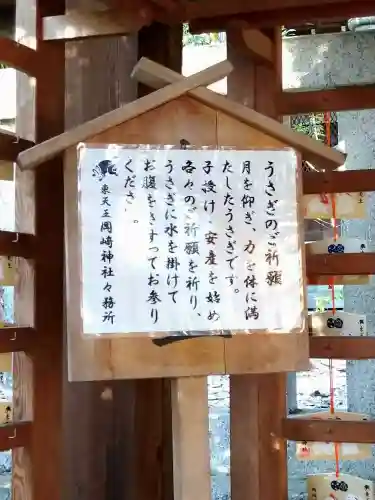 うさぎのご祈願
月を仰ぎ、力を体に満
たしたうさぎです。
子授け、安産を始め
各々のご祈願を祈り、
うさぎに水を掛けて
お腹をさすってお参り
ください。
東天王岡崎神社々務所